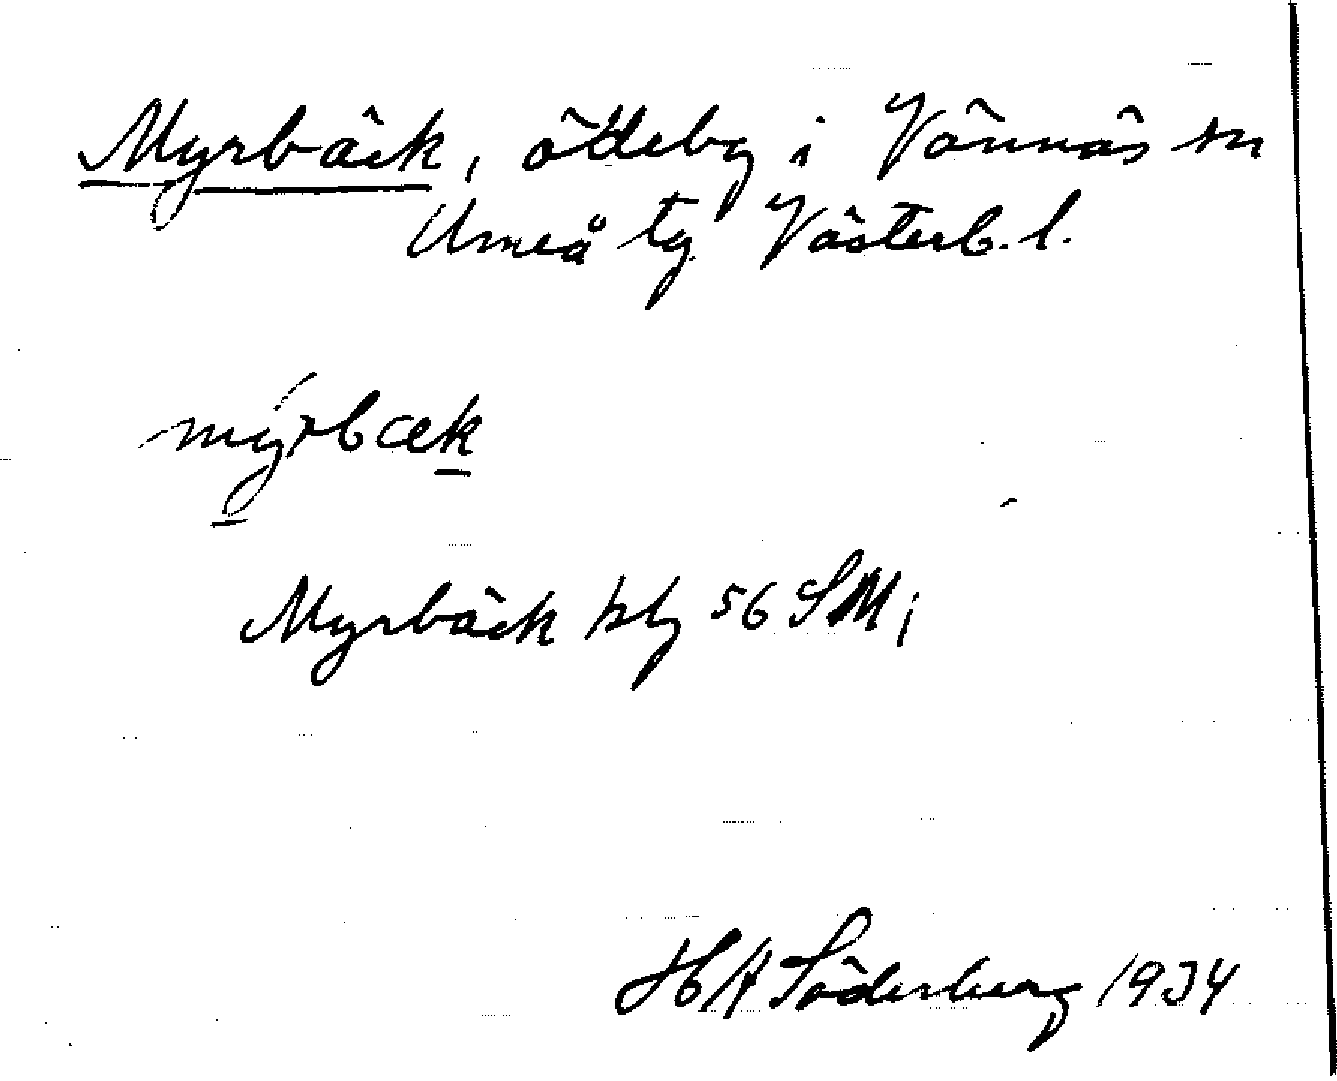 Myrbäck, ödeby i Vännäs sn
Umeå tg. Västerb. l.
mýrbæk
Myrbäck kbl 56 SM;
HA Söderberg 1934